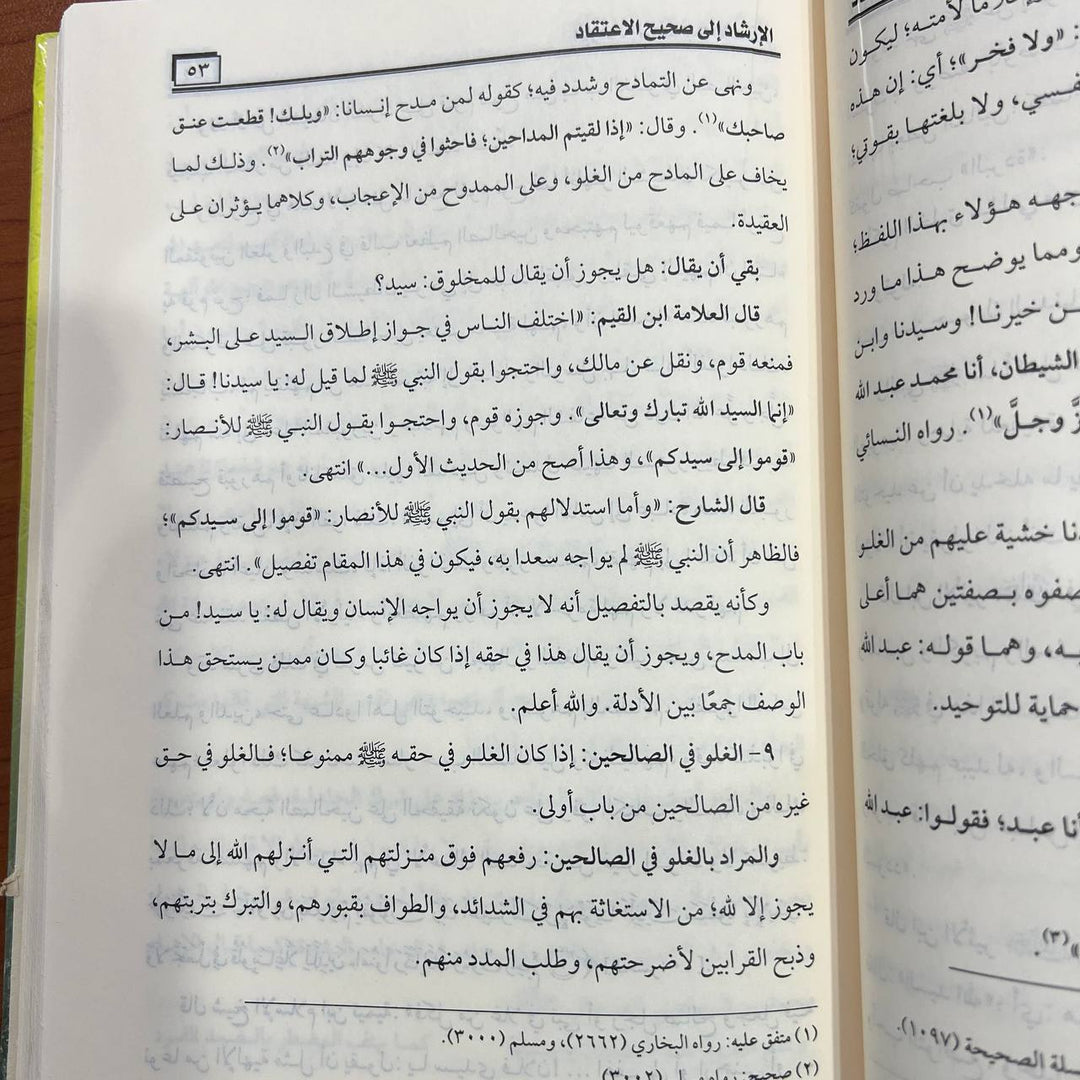 الإرشاد إلى صحيح الاعتقاد
٥٣
ونهى عن التمادح وشدد فيه؛ كقوله لمن مدح إنسانا: «ويلك! قطعت عنق
صاحبك»(١). وقال: «إذا لقيتم المداحين؛ فاحثوا في وجوههم التراب»(٢). وذلك لما
يخاف على المادح من الغلو، وعلى الممدوح من الإعجاب، وكلاهما يؤثران على
العقيدة.
بقي أن يقال: هل يجوز أن يقال للمخلوق: سيد؟
قال العلامة ابن القيم: «اختلف الناس في جواز إطلاق السيد على البشر،
فمنعه قوم، ونقل عن مالك، واحتجوا بقول النبي ﷺ لما قيل له: يا سيدنا! قال:
«إنما السيد الله تبارك وتعالى». وجوزه قوم، واحتجوا بقول النبي ﷺ للأنصار:
«قوموا إلى سيدكم»، وهذا أصح من الحديث الأول...» انتهى.
قال الشارح: «وأما استدلالهم بقول النبي ﷺ للأنصار: «قوموا إلى سيدكم»؛
فالظاهر أن النبي ﷺ لم يواجه سعدا به، فيكون في هذا المقام تفصيل». انتهى.
وكأنه يقصد بالتفصيل أنه لا يجوز أن يواجه الإنسان ويقال له: يا سيد! من
باب المدح، ويجوز أن يقال هذا في حقه إذا كان غائبا وكان ممن يستحق هذا
الوصف جمعًا بين الأدلة. والله أعلم.
٩- الغلو في الصالحين: إذا كان الغلو في حقه ﷺ ممنوعا؛ فالغلو في حق
غيره من الصالحين من باب أولى.
والمراد بالغلو في الصالحين: رفعهم فوق منزلتهم التي أنزلهم الله إلى ما لا
يجوز إلا لله؛ من الاستغاثة بهم في الشدائد، والطواف بقبورهم، والتبرك بتربتهم،
وذبح القرابين لأضرحتهم، وطلب المدد منهم.
(١) متفق عليه: رواه البخاري (٢٦٦٢)، ومسلم (٣٠٠٠).
(٢) صحيح: رواه مسلم (٣٠٠٢)
لأمته؛ ليكون
«ولا فخر»؛ أي: إن هذه
ولا بلغتها بقوتي؛
هؤلاء بهذا اللفظ؛
ومما يوضح هذا ما ورد
خيرنا! وسيدنا وابن
الشيطان، أنا محمد عبد الله
وجلَّ»(١). رواه النسائي
خشية عليهم من الغلو
بصفتين هما أعلى
وهما قوله: عبد الله
حماية للتوحيد.
أنا عبد؛ فقولوا: عبد الله
»(٣).
الصحيحة (١٠٩٧).